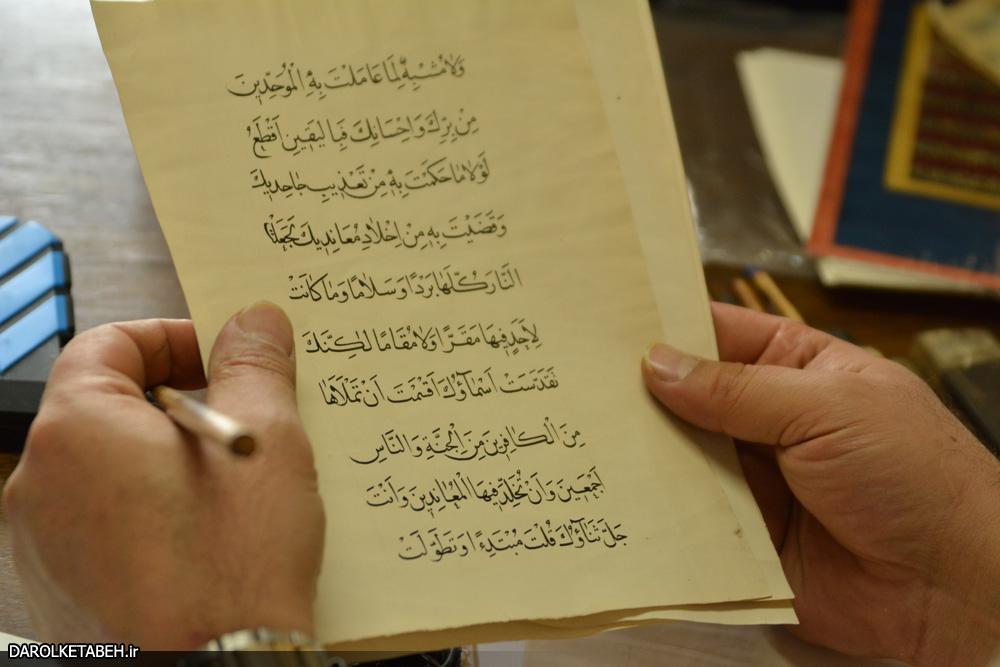 وَلَامُشْبِهٌ لِمَا عَامَلْتَ بِهِ الْمُوَحِّدِينَ
مِنْ بِرِّكَ وَاِحْسَانِكَ فَبِالْيَقِينِ اَقْطَعُ
لَوْلَامَا حَكَمْتَ بِهِ مِنْ تَعْذِيبِ جَاحِدِيكَ
وَقَضَيْتَ بِهِ مِنْ اِخْلَادِ مُعَانِدِيكَ لَجَعَلْتَ
النَّارَ كُلَّهَا بَرْدًا وَسَلَامًا وَمَا كَانَتْ
لِاَحَدٍ فِيهَا مَقَرًّا وَلَامُقَامًا لٰكِنَّكَ
تَقَدَّسَتْ اَسْمَآؤُكَ اَقْسَمْتَ اَنْ تَمْلَاَهَا
مِنَ الْكَافِرِينَ مِنَ الْجِنَّةِ وَالنَّاسِ
اَجْمَعِينَ وَاَنْ تُخَلِّدَ فِيهَا الْمُعَانِدِينَ وَاَنْتَ
جَلَّ ثَنَآؤُكَ قُلْتَ مُبْتَدِءًا وَتَطَوَّلْتَ
DAROLKETABEH.ir